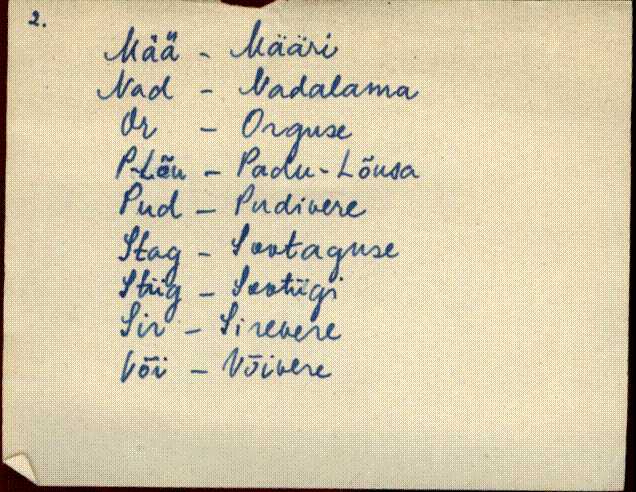 2.
Mää - Määri
Nad - Nadalama
Or - Orguse
P-Lõu - Padu-Lõusa
Pud - Pudivere
Stag - Sootaguse
Stiig - Sootiigi
Sir - Sirevere
Või - Võivere